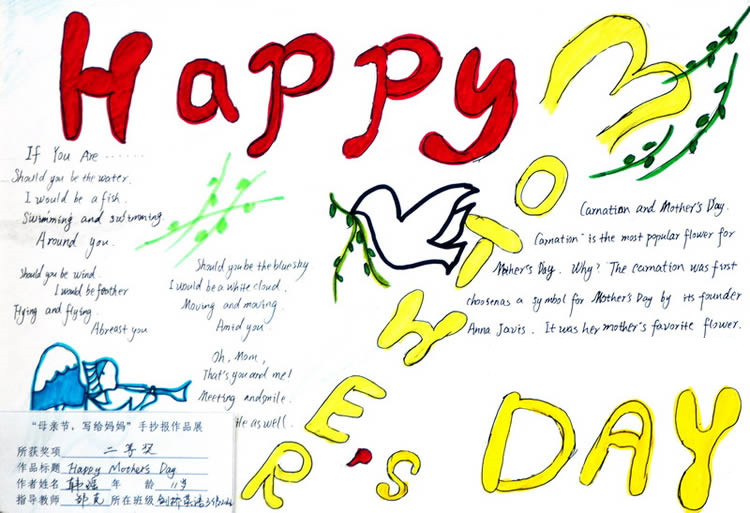 Happy
MOTHER'S
DAY
If You Are ......
Should you be the water.
I would be a fish.
Swimming and swimming.
Around you.
Should you be wind.
I would be feather
Flying and flying.
Abreast you
Should you be the blue sky
I would be a white cloud.
Moving and moving.
Amid you.
Oh, Mom,
That's you and me!
Meeting and smile.
as well.
Carnation and Mother's Day.
Carnation is the most popular flower for
Mother's Day. Why? The carnation was first
choosenas a symbol for Mother's Day by its founder
Anna Javis. It was her mother's favorite flower.
“母亲节,写给妈妈”手抄报作品展
所获奖项 二等奖
作品标题 Happy Mother's Day
作者姓名 韩瑶 年 龄 11岁
指导教师 所在班级 剑桥英语